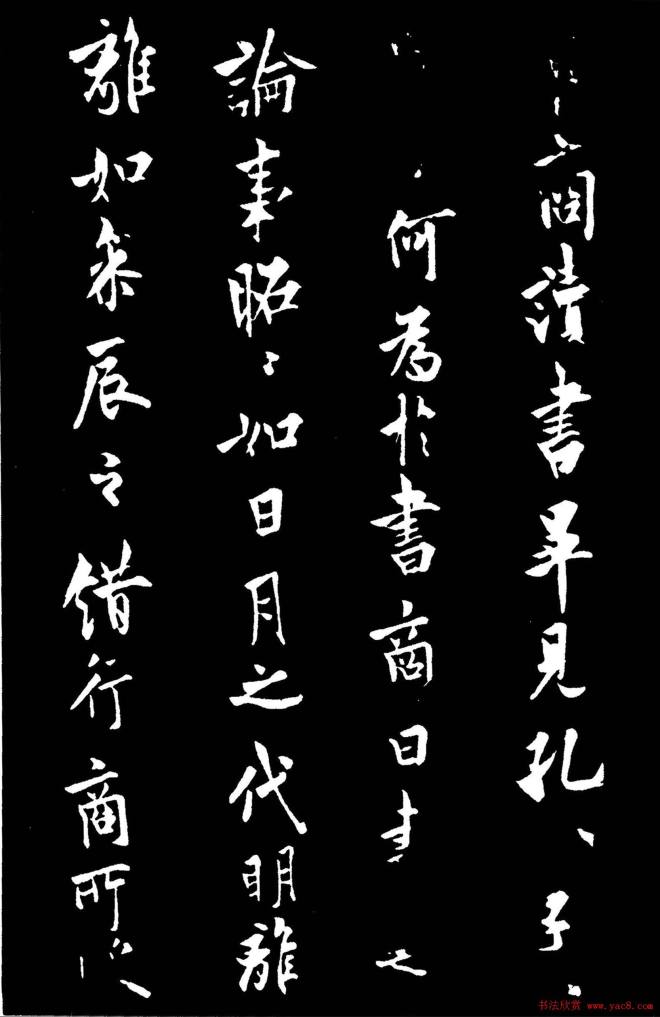 商讀書畢見孔〻子〻
何為於書商曰書之
論事昭〻如日月之代明離
離如參辰之錯行商所
书法欣赏 www.yac8.com